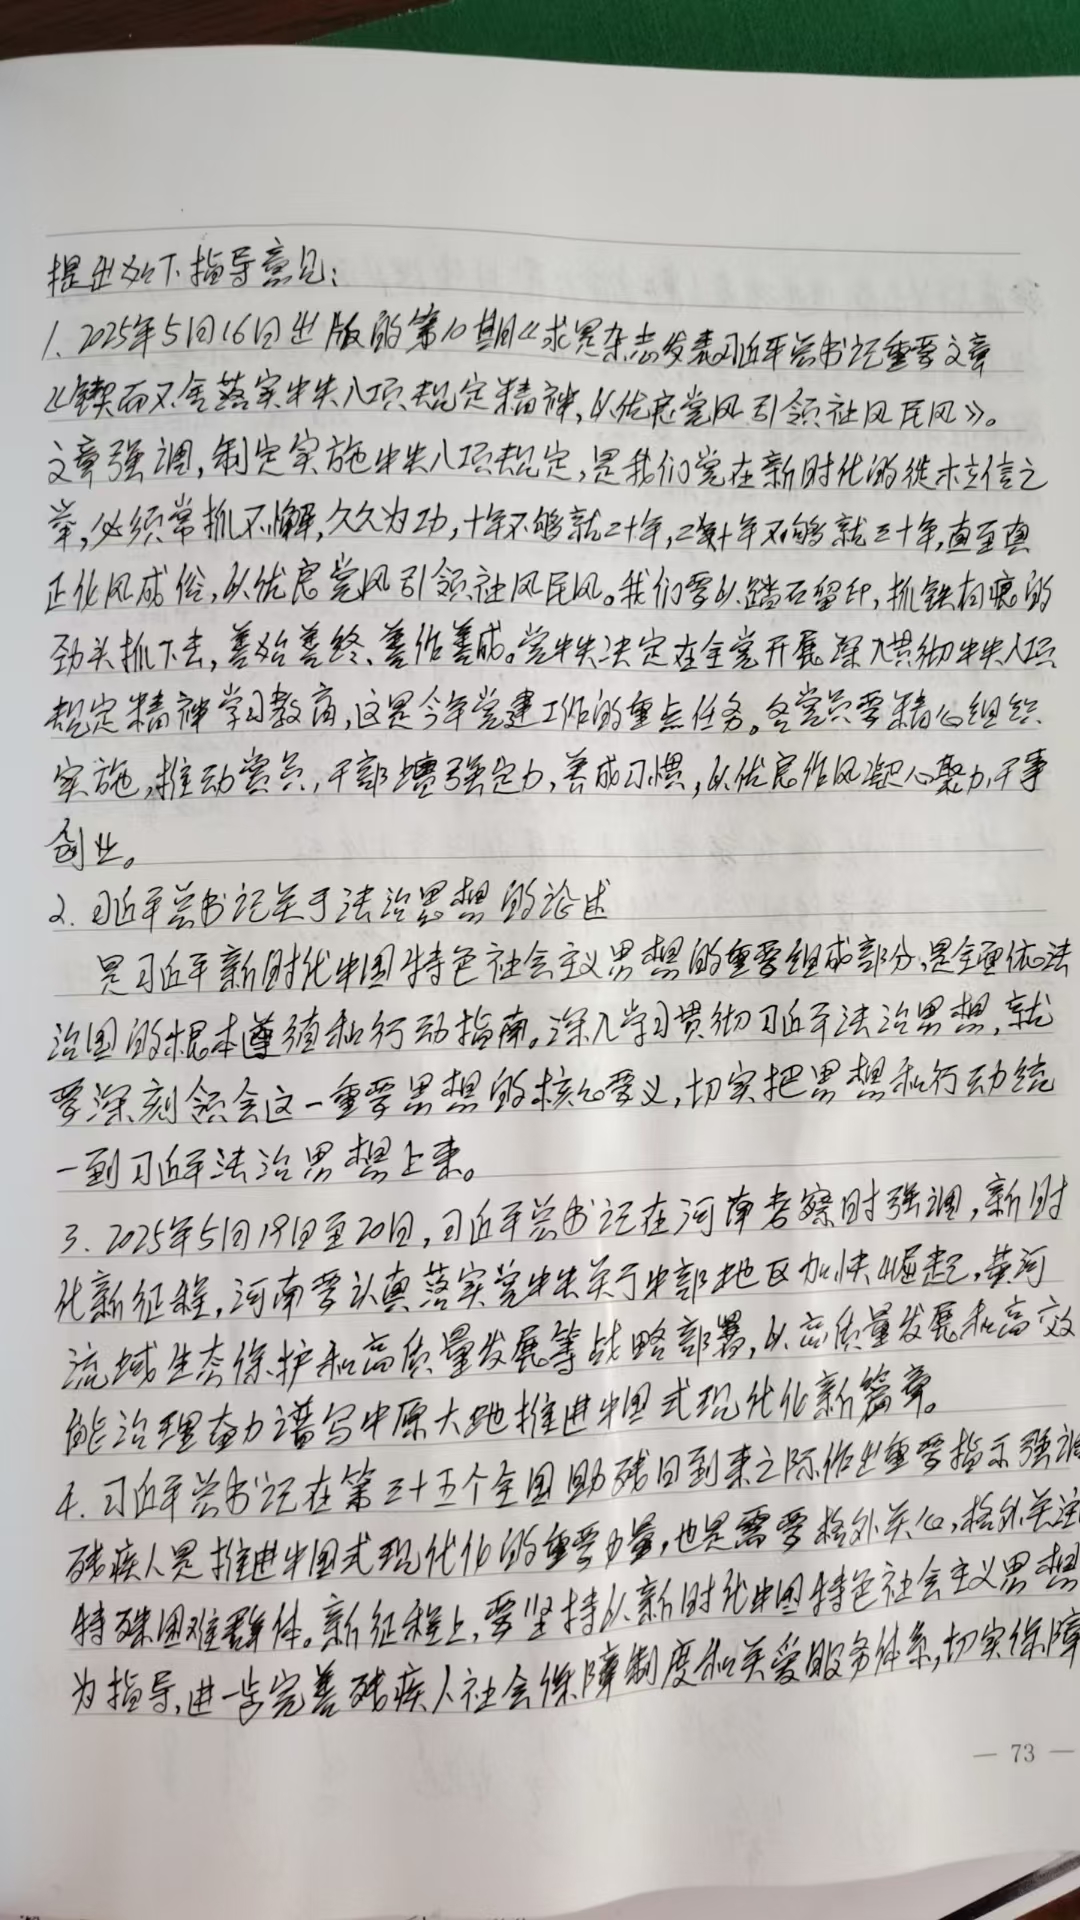 提出如下指导意见：
1. 2025年5月16日出版的第10期《求是杂志发表习近平总书记重要文章
《锲而不舍落实中央八项规定精神，以优良党风引领社风民风》。
文章强调，制定实施中央八项规定，是我们党在新时代的徙木立信之
举，必须常抓不懈，久久为功，十年不够就二十年，二十年不够就三十年，直至真
正化风成俗，以优良党风引领社风民风。我们要以踏石留印，抓铁有痕的
劲头抓下去，善始善终、善作善成。党中央决定在全党开展深入贯彻中央八项
规定精神学习教育，这是今年党建工作的重点任务。各党员要精心组织
实施，推动党员，干部增强定力，养成习惯，以优良作风凝心聚力，干事
创业。
2. 习近平总书记关于法治思想的论述
是习近平新时代中国特色社会主义思想的重要组成部分，是全面依法
治国的根本遵循和行动指南。深入学习贯彻习近平法治思想，就
要深刻领会这一重要思想的核心要义，切实把思想和行动统
一到习近平法治思想上来。
3. 2025年5月19日至20日，习近平总书记在河南考察时强调，新时
代新征程，河南要认真落实党中央关于中部地区加快崛起，黄河
流域生态保护和高质量发展等战略部署，以高质量发展和高效
能治理奋力谱写中原大地推进中国式现代化新篇章。
4. 习近平总书记在第三十五个全国助残日到来之际作出重要指示强调
残疾人是推进中国式现代化的重要力量，也是需要格外关心，格外关注
特殊困难群体。新征程上，要坚持以新时代中国特色社会主义思想
为指导，进一步完善残疾人社会保障制度和关爱服务体系，切实保障
— 73 —